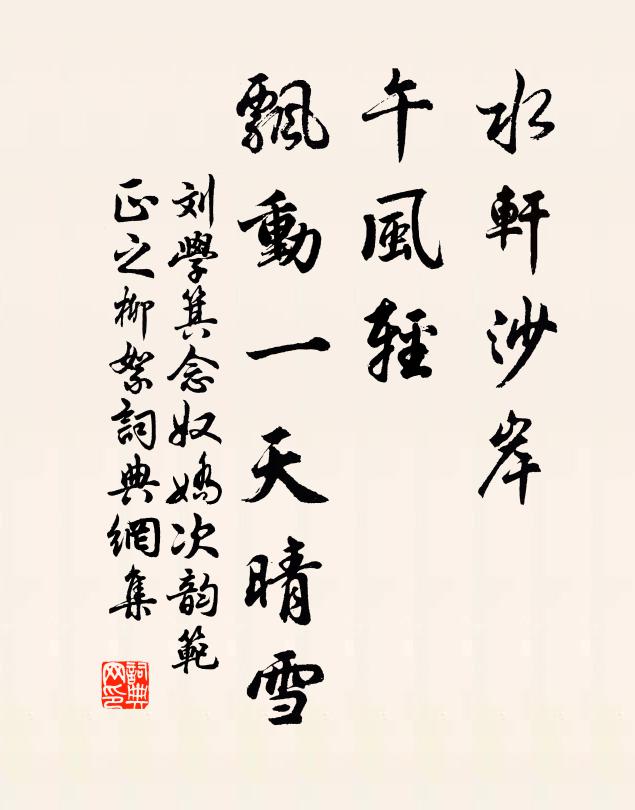 水軒沙岸
午風輕
飄動一天晴雪
刘學箕念奴嬌次韵範
正之柳絮詞典網集
詞典網印